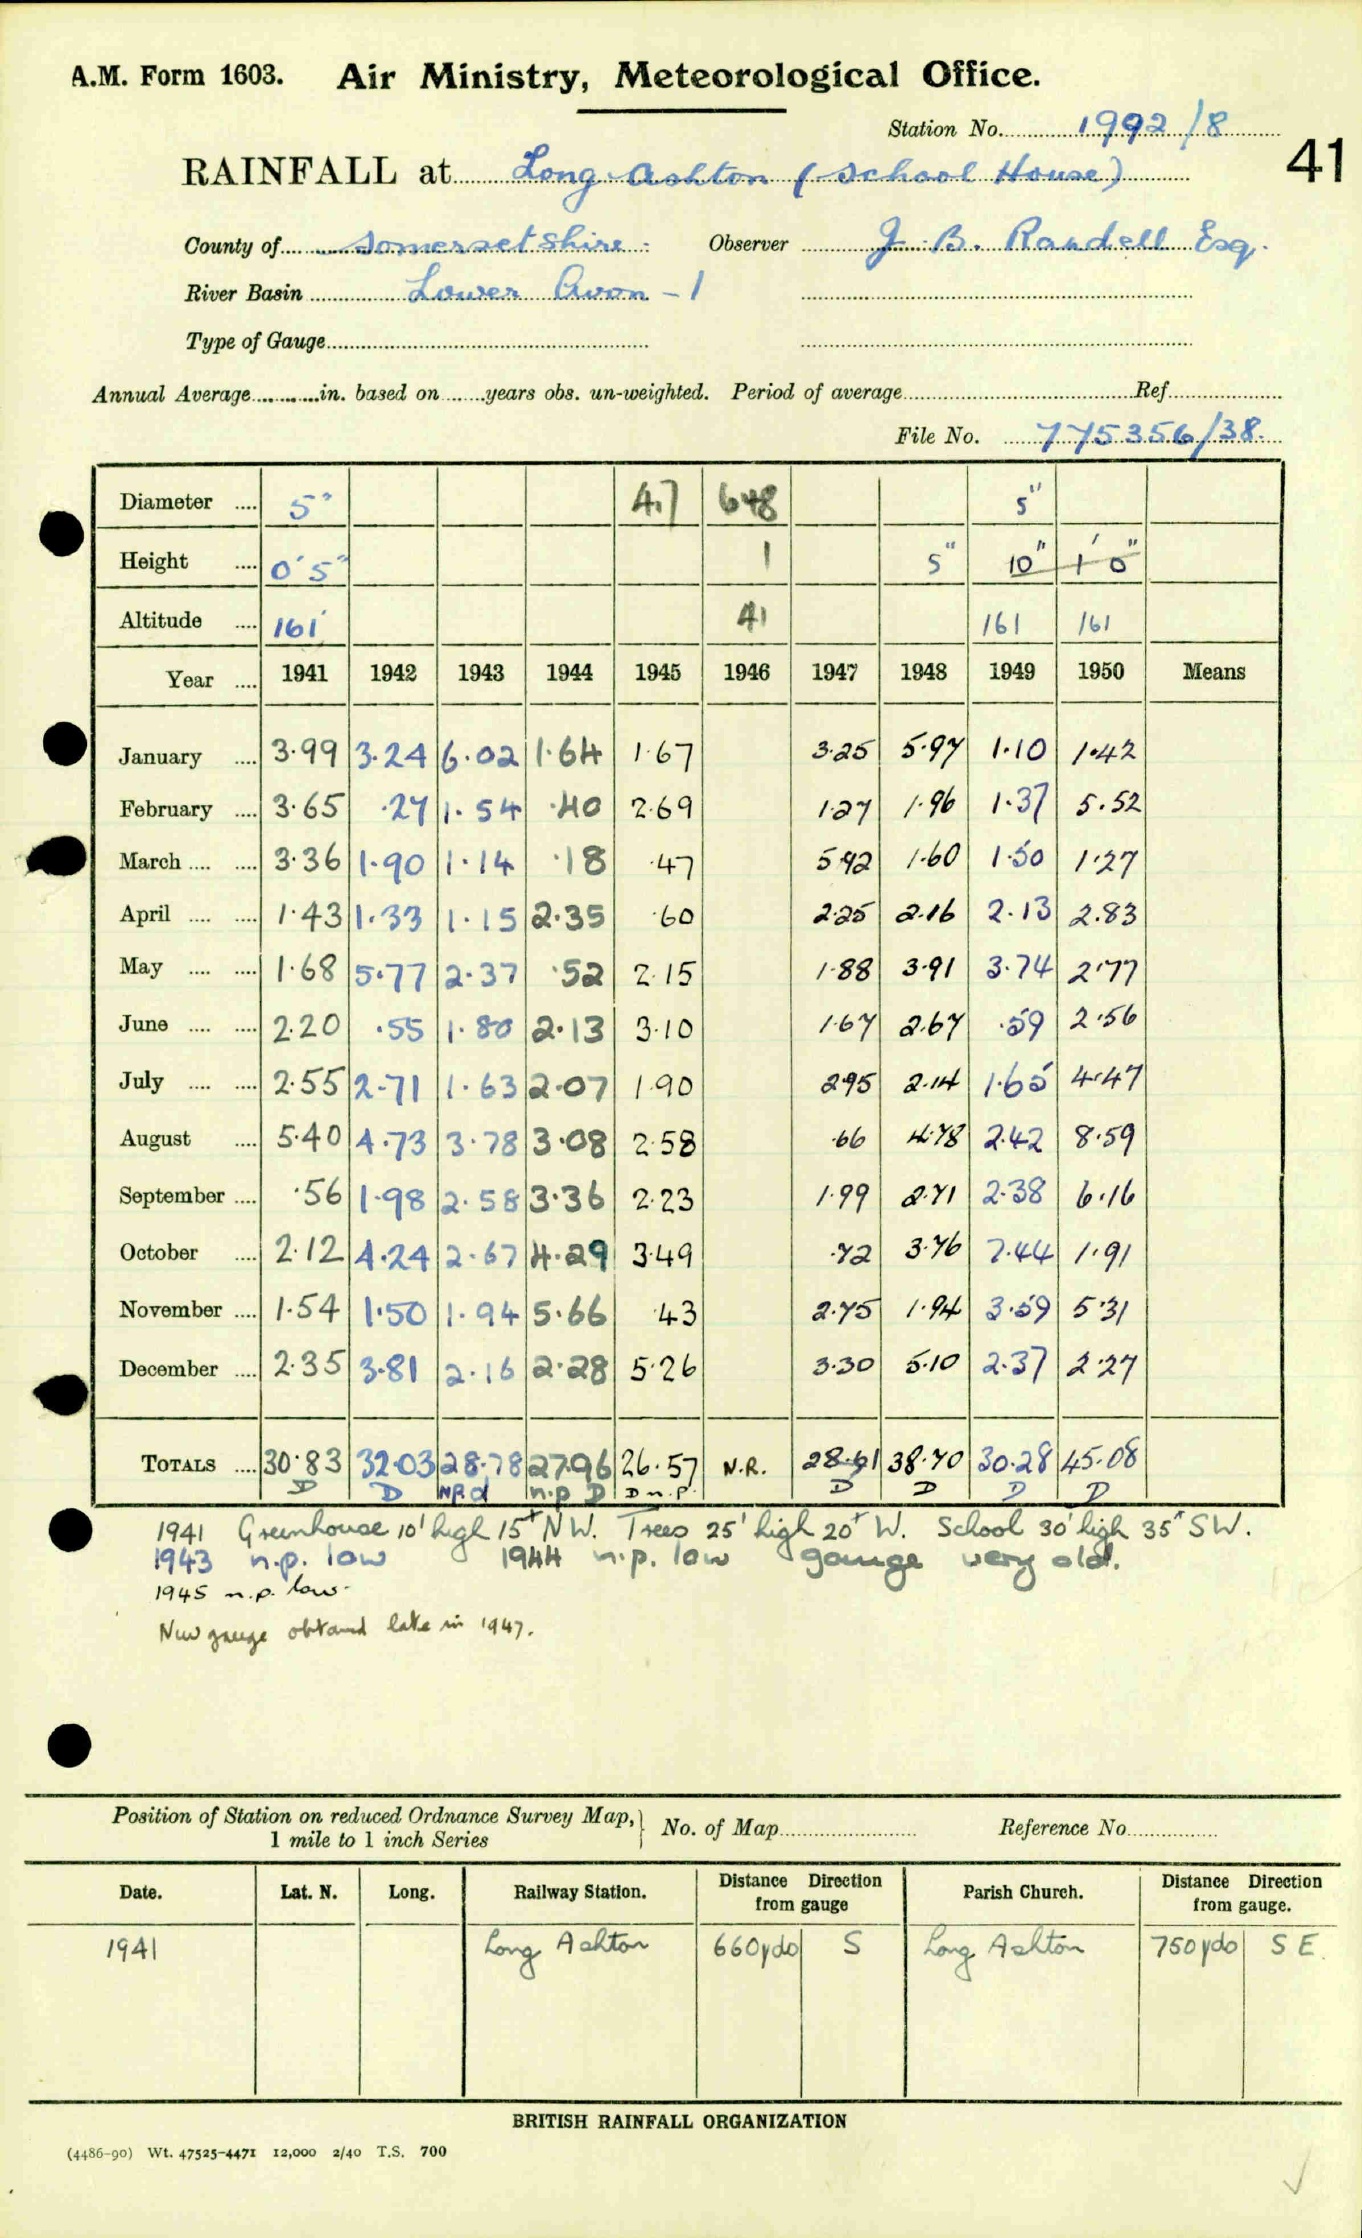 A.M. Form 1603. Air Ministry, Meteorological Office.
Station No. 1992/8
41
RAINFALL at Long Ashton (School House)
County of Somersetshire Observer J. B. Randell Esq.
River Basin Lower Avon - 1
Type of Gauge
Annual Average in. based on years obs. un-weighted. Period of average Ref
File No. 775356/38.
Diameter 5" 4.7 648 5"
Height 0'5" 1 5" 10" 1'0"
Altitude 161' 41 161 161
Year 1941 1942 1943 1944 1945 1946 1947 1948 1949 1950 Means
January 3.99 3.24 6.02 1.64 1.67 3.25 5.97 1.10 1.42
February 3.65 .27 1.54 .40 2.69 1.27 1.96 1.37 5.52
March 3.36 1.90 1.14 .18 .47 5.92 1.60 1.50 1.27
April 1.43 1.33 1.15 2.35 .60 2.25 2.16 2.13 2.83
May 1.68 5.77 2.37 .52 2.15 1.88 3.91 3.74 2.77
June 2.20 .55 1.80 2.13 3.10 1.67 2.67 .59 2.56
July 2.55 2.71 1.63 2.07 1.90 2.95 2.14 1.65 4.47
August 5.40 4.73 3.78 3.08 2.58 .66 4.78 2.42 8.59
September .56 1.98 2.58 3.36 2.23 1.99 2.71 2.38 6.16
October 2.12 4.24 2.67 4.29 3.49 .72 3.76 7.44 1.91
November 1.54 1.50 1.94 5.66 .43 2.75 1.94 3.59 5.31
December 2.35 3.81 2.16 2.28 5.26 3.30 5.10 2.37 2.27
TOTALS 30.83 32.03 28.78 27.96 26.57 N.R. 28.61 38.70 30.28 45.08
D D NP.d n.p D D n.p. D D D D
1941 Greenhouse 10' high 15+ NW. Trees 25' high 20+ W. School 30' high 35+ SW.
1943 n.p. low 1944 n.p. low gauge very old.
1945 n.p. low.
New gauge obtained late in 1947.
Position of Station on reduced Ordnance Survey Map, 1 mile to 1 inch Series No. of Map Reference No.
Date. Lat. N. Long. Railway Station. Distance Direction from gauge Parish Church. Distance Direction from gauge.
1941 Long Ashton 660yds S Long Ashton 750yds S E.
BRITISH RAINFALL ORGANIZATION
(4486-90) Wt. 47525-4471 12,000 2/40 T.S. 700